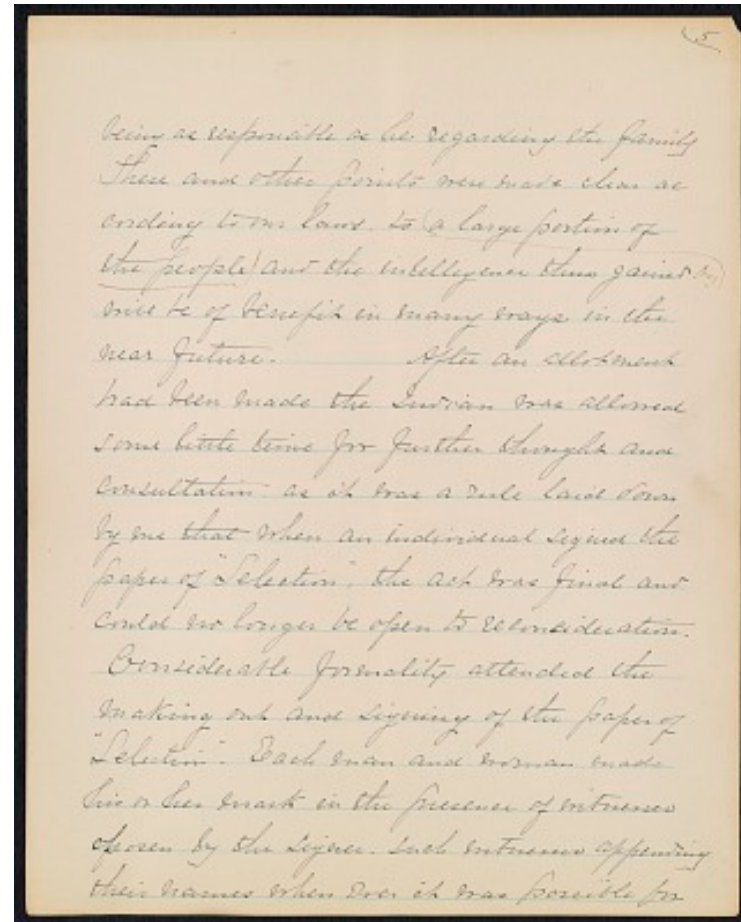 5
being as responsible as he regarding the family
These and other points were made clear ac
cording to our laws. to (a large portion of
the people) and the intelligence thus gained
will be of benefit in many ways in the
near future. After an allotment
had been made the Indian was allowed
some little time for further thought and
consultation as it was a rule laid down
by me that when an individual signed the
paper of "Selection", the act was final and
could no longer be open to reconsideration.
Considerable formality attended the
making out and signing of the paper of
"Selection". Each man and woman made
his or her mark in the presence of witnesses
chosen by the signer. such witnesses appending
their names when ever it was possible for